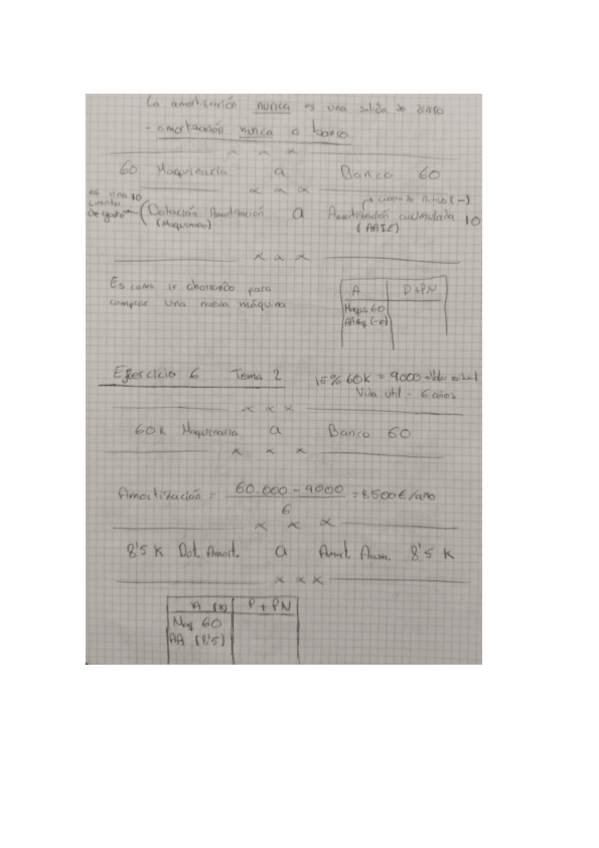 La amortización nunca es una salida de dinero
- amortización nunca a banco
x x x
60 Maquinaria a Banco 60
x x x
es una cuenta de gasto
10 (Dotación Amortización a Amortización acumulada 10
(Maquinaria) (AAIZ)
cuenta de Activo (-)
x x x
Es como ir ahorrando para
comprar una nueva máquina
A P+PN
Maq 60
AA
Ejercicio 6 Tema 2
15% 60K = 9000 → Valor
Vida útil = 6 años
x x x
60K Maquinaria a Banco 60
x x x
Amortización = 60.000 - 9000 / 6 = 8.500€/año
x x x
8'5 K Dot. Amort. a Amort. Acum. 8'5 K
x x x
A (K) P + PN
Maq 60
AA (8'5)